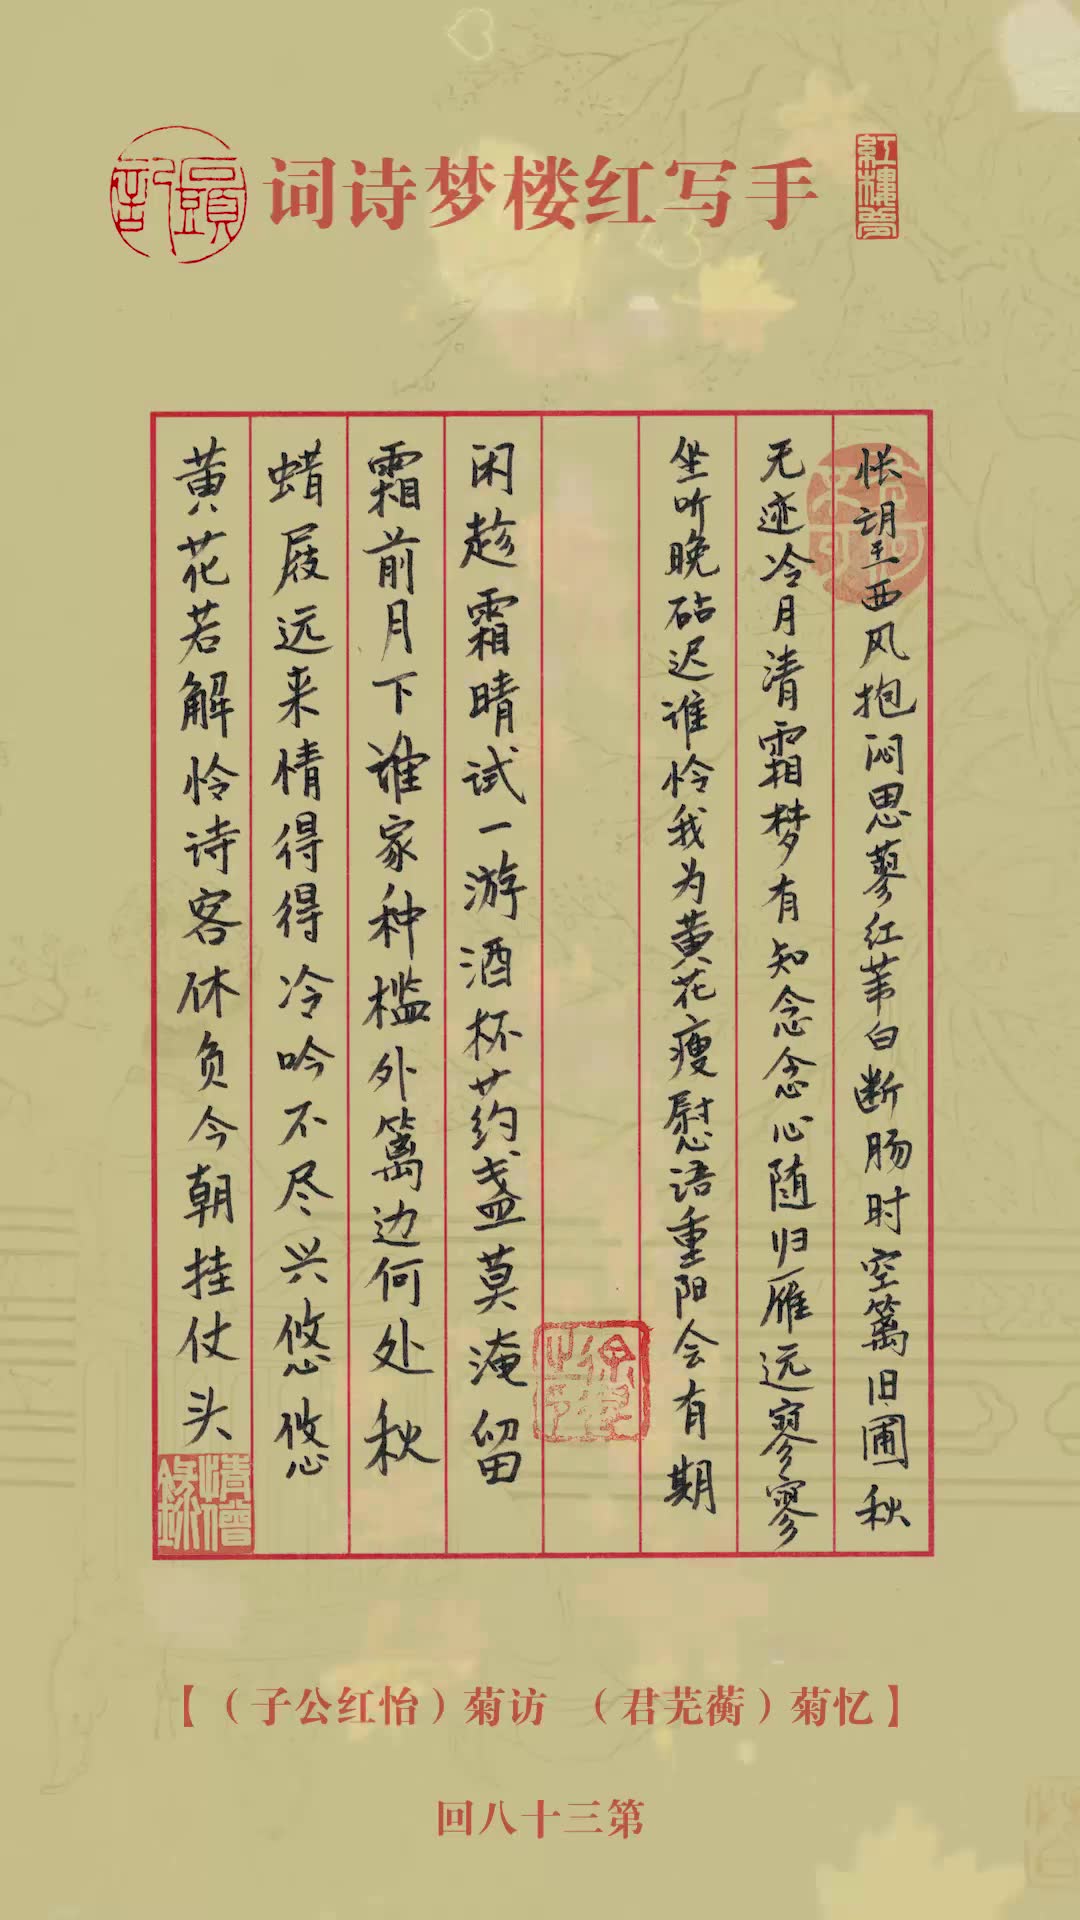 紅樓夢
手写红楼梦诗词
石頭記
怅望西风抱闷思蓼红苇白断肠时空篱旧圃秋
无迹冷月清霜梦有知念念心随归雁远寥寥
坐听晚砧迟谁怜我为黄花瘦慰语重阳会有期
闲趁霜晴试一游酒杯药盏莫淹留
霜前月下谁家种槛外篱边何处秋
蜡屐远来情得得冷吟不尽兴悠悠
黄花若解怜诗客休负今朝挂仗头
情僧錄
【忆菊（蘅芜君） 访菊（怡红公子）】
第三十八回